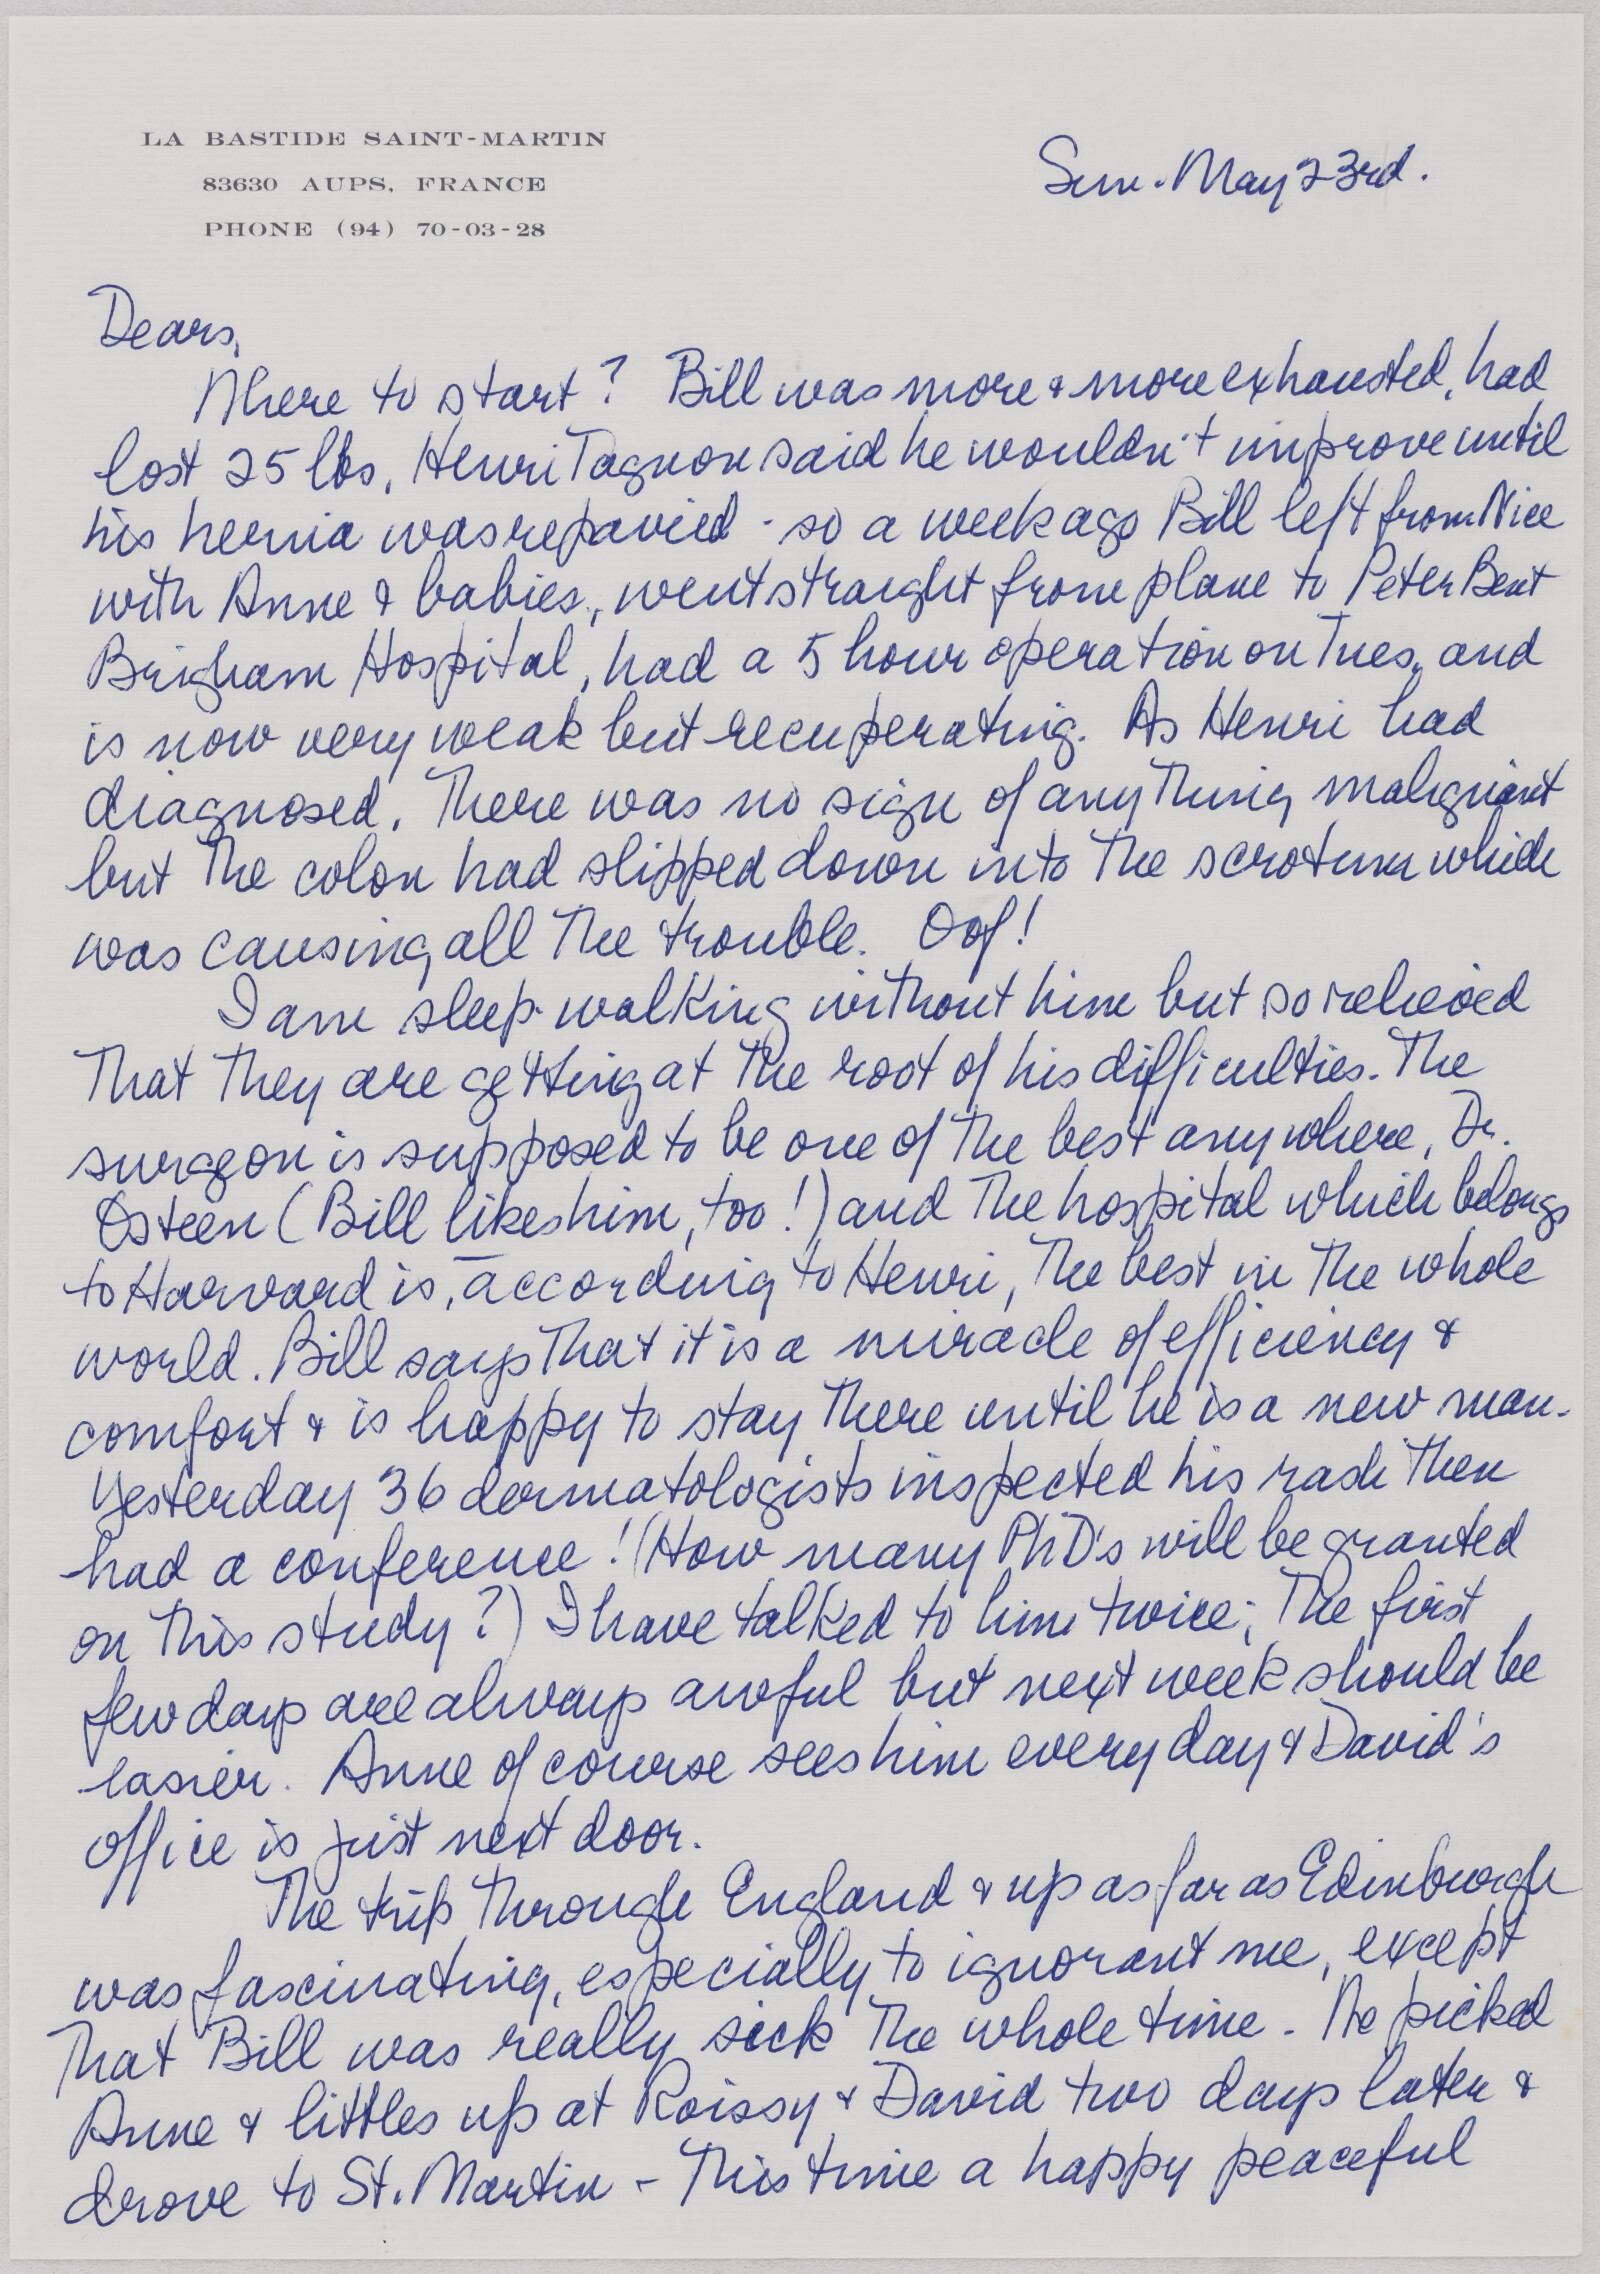 LA BASTIDE SAINT-MARTIN
83630 AUPS, FRANCE
PHONE (94) 70-03-28
Sun. May 23rd.
Dears,
Where to start? Bill was more & more exhausted, had
lost 25 lbs, Henri Tagnon said he wouldn't improve until
his hernia was reparied - so a week ago Bill left from Nice
with Anne & babies, went straight from plane to Peter Bent
Brigham Hospital, had a 5 hour operation on Tues, and
is now very weak but recuperating. As Henri had
diagnosed, There was no sign of anything malignant
but The colon had slipped down into The scrotum which
was causing all The trouble. Oof!
I am sleep-walking without him but so relieved
That They are getting at The root of his difficulties. The
surgeon is supposed to be one of The best anywhere, Dr.
Osteen (Bill likes him, too!) and The hospital which belongs
to Harvard is, according to Henri, The best in The whole
world. Bill says That it is a miracle of efficiency &
comfort & is happy to stay There until he is a new man.
Yesterday 36 dermatologists inspected his rash Then
had a conference! (How many PhD's will be granted
on This study?) I have talked to him twice; The first
few days are always awful but next week should be
easier. Anne of course sees him every day & David's
office is just next door.
The trip Through England & up as far as Edinburgh
was fascinating, especially to ignorant me, except
That Bill was really sick The whole time. We picked
Anne & littles up at Roissy & David two days later &
drove to St. Martin - This time a happy peaceful